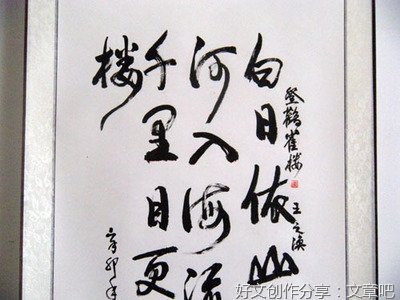 登鹳雀楼 王之涣
白日依山
河入海流
千里目更
楼
辛卯年
好文创作分享：文章吧